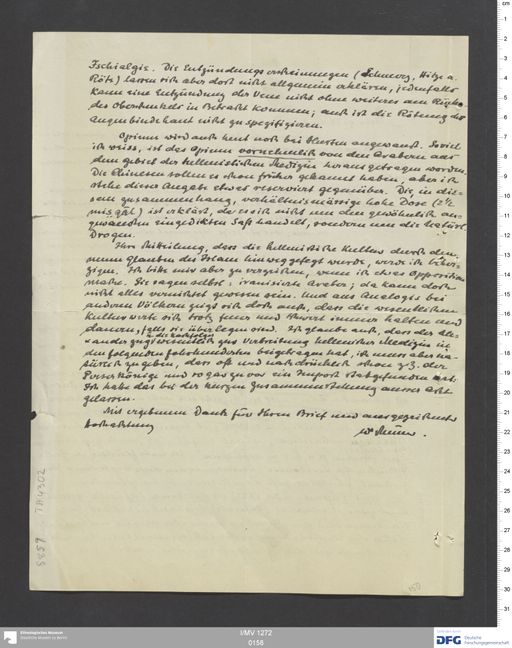 Ischialgie. Die Entzündungserscheinungen (Schmerz, Hitze u.
Röte) lassen sich aber doch nicht allgemein erklären, jedenfalls
kann eine Entzündung der Vene nicht ohne weiteres am Rücken
des Oberschenkels in Betracht kommen; auch ist die Rötung der
Augenbindehaut nicht zu spezifizieren.
Opium wird auch heut noch bei Husten angewandt. Soviel
ich weiss, ist das Opium vornehmlich von den Arabern aus
dem Gebiet der hellenistischen Medizin herausgetragen worden.
Die Chinesen sollen es schon früher gekannt haben, aber ich
stehe dieser Angabe etwas reserviert gegenüber. Die, in die-
sem Zusammenhang, verhältnismässig hohe Dose (2½
misqāl) ist erklärt, da es sich nicht um den gewöhnlich an-
gewandten eingedickten Saft handelt, sondern um die
Drogen.
Ihre Mitteilung, dass die hellenistische Kultur durch den
neuen Glauben des Islam hinweggefegt wurde, werde ich
Ich bitte mir aber zu verzeihen, wenn ich etwas Opposition
mache. Sie sagen selbst: iranisierte Araber; da kann doch
nicht alles vernichtet gewesen sein. Und aus Analogie bei
anderen Völkern zeigt sich doch auch, dass die wesentlichen
Kulturwerte sich trotz Feuer und Schwert immer halten und
dauern, falls sie überlegen sind. Ich glaube auch, dass der Alex-
anderzug wesentlich zur Verbreitung hellenischer Medizin in
den folgenden Jahrhunderten beigetragen hat, ich muss aber na-
türlich zugeben, dass oft und nachdrücklich schon z.B. der
Perserkönige und sogar zuvor ein Import stattgefunden hat.
Ich habe das bei der kurzen Zusammenstellung ausser Acht
gelassen.
Mit ergebenem Dank für Ihren Brief und ausgezeichneter
Hochachtung
8859
TIII 4302
150
I/MV 1272
0156
Ethnologisches Museum
Staatliche Museen zu Berlin
DFG Deutsche
Forschungsgemeinschaft